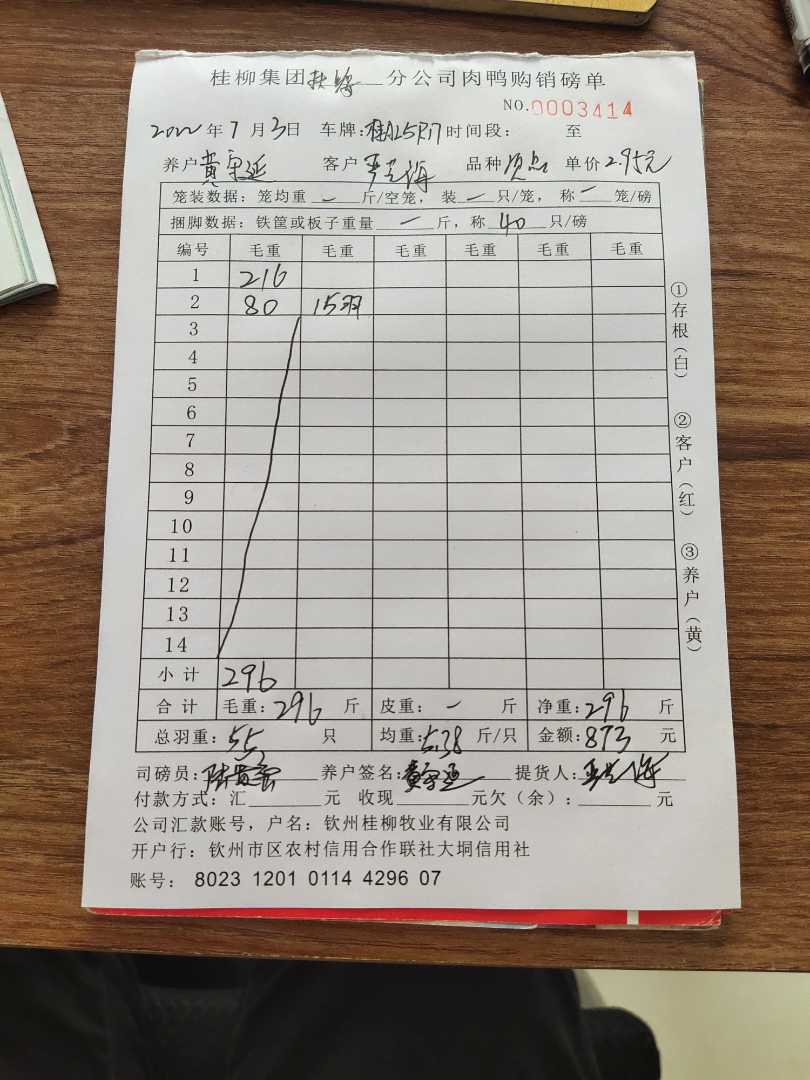 桂柳集团扶绥分公司肉鸭购销磅单
NO.0003414
2022年7月3日 车牌: 时间段: 至
养户黄守延 客户 品种 单价2.95元
笼装数据: 笼均重 — 斤/空笼, 装 — 只/笼, 称 — 笼/磅
捆脚数据: 铁筐或板子重量 — 斤, 称 40 只/磅
编号 毛重 毛重 毛重 毛重 毛重 毛重
1 216
2 80 15羽
3
4
5
6
7
8
9
10
11
12
13
14
小计 296
合计 毛重: 296 斤 皮重: — 斤 净重: 296 斤
总羽重: 55 只 均重: 5.38 斤/只 金额: 873 元
司磅员: 养户签名: 黄守延 提货人:
付款方式: 汇____元 收现____元欠(余): ____元
公司汇款账号, 户名: 钦州桂柳牧业有限公司
开户行: 钦州市区农村信用合作联社大垌信用社
账号: 8023 1201 0114 4296 07
①存根(白)
②客户(红)
③养户(黄)